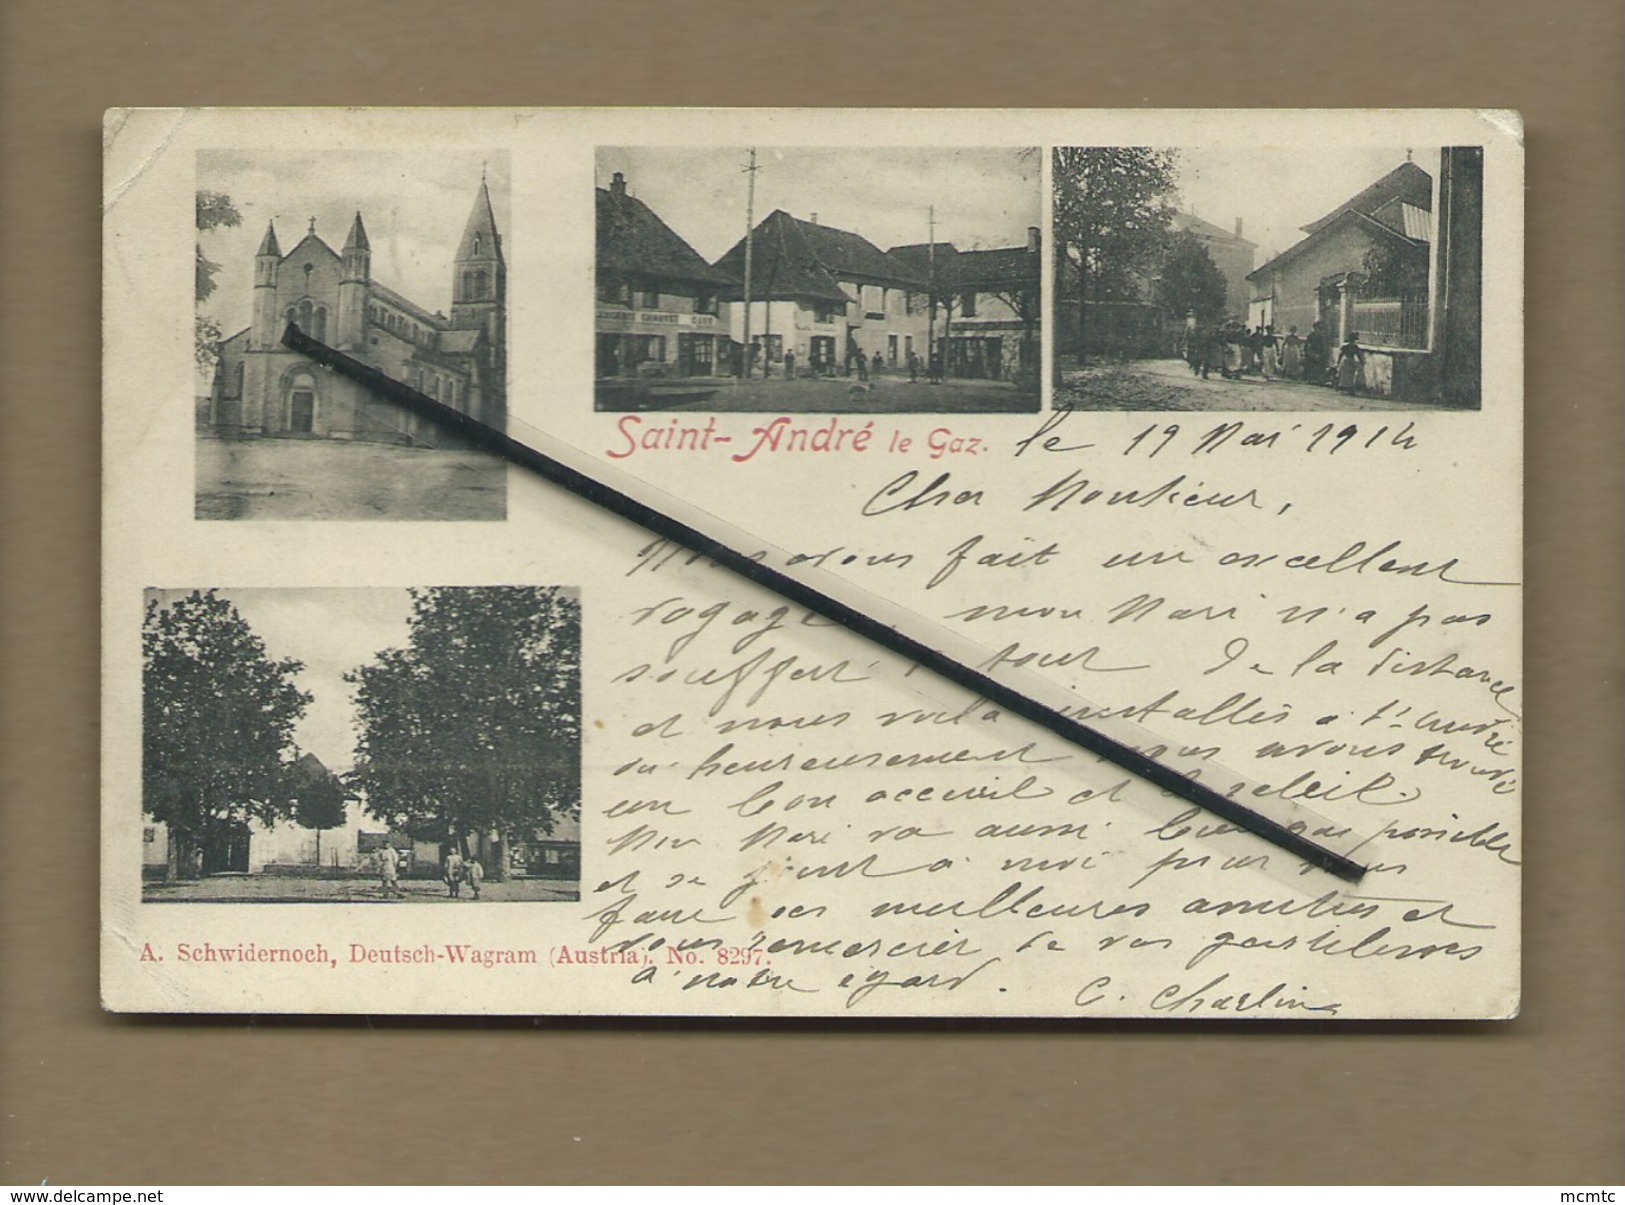 CHAUVET CAFÉ
Saint-André le Gaz.
le 19 Mai 1914
Cher Monsieur,
Nous avons fait un excellent
voyage, mon Mari n'a pas
souffert du tout de la distance
et nous voila installés à St-André
où heureusement nous avons trouvé
un bon accueil et le soleil.
Mon Mari va aussi bien que possible
et se joint à moi pour vous
faire ses meilleures amitiés et
vous remercier de vos gentillesses
à notre égard.
C. Charlin
A. Schwidernoch, Deutsch-Wagram (Austria). No. 8297.
delcampe.net
mcmtc